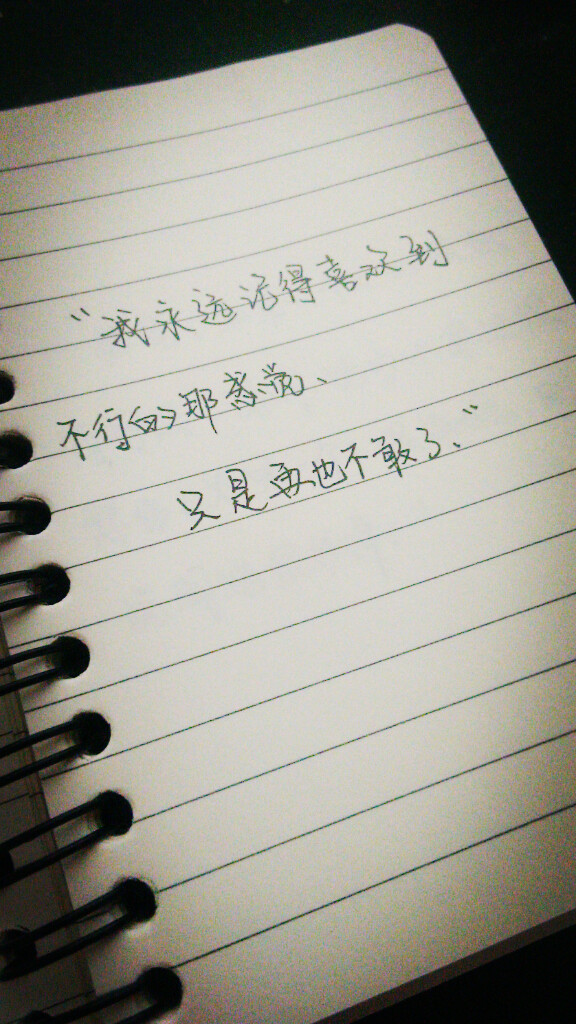 “我永远记得喜欢到
不行的那感觉、
只是再也不敢了、”